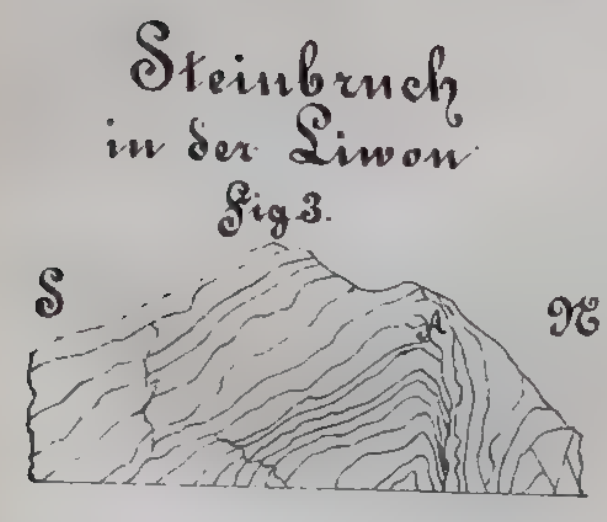 Steinbruch
in der Liwon
Fig 3.
S N
A